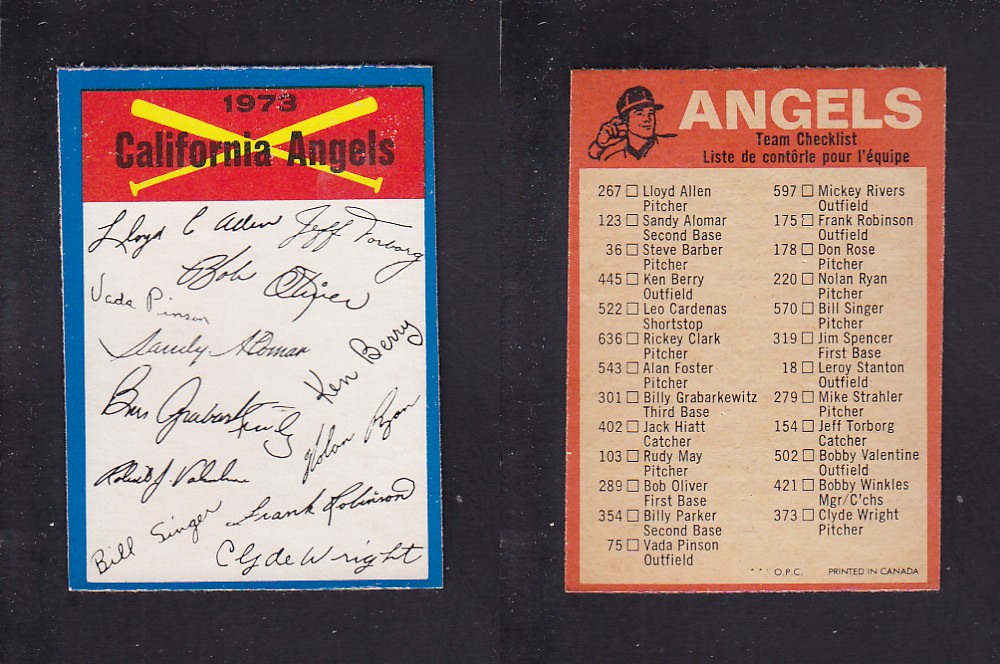 1973
California Angels
Lloyd C Allen
Jeff Torborg
Bob Oliver
Vada Pinson
Sandy Alomar
Ken Berry
Billy Grabarkewitz
Nolan Ryan
Robert J. Valentine
Bill Singer
Frank Robinson
Clyde Wright
ANGELS
Team Checklist
Liste de contôrle pour l'équipe
267 Lloyd Allen
Pitcher
123 Sandy Alomar
Second Base
36 Steve Barber
Pitcher
445 Ken Berry
Outfield
522 Leo Cardenas
Shortstop
636 Rickey Clark
Pitcher
543 Alan Foster
Pitcher
301 Billy Grabarkewitz
Third Base
402 Jack Hiatt
Catcher
103 Rudy May
Pitcher
289 Bob Oliver
First Base
354 Billy Parker
Second Base
75 Vada Pinson
Outfield
597 Mickey Rivers
Outfield
175 Frank Robinson
Outfield
178 Don Rose
Pitcher
220 Nolan Ryan
Pitcher
570 Bill Singer
Pitcher
319 Jim Spencer
First Base
18 Leroy Stanton
Outfield
279 Mike Strahler
Pitcher
154 Jeff Torborg
Catcher
502 Bobby Valentine
Outfield
421 Bobby Winkles
Mgr/C'chs
373 Clyde Wright
Pitcher
*** O.P.C. PRINTED IN CANADA